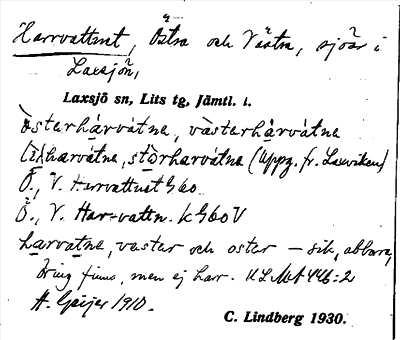 Harrvattnet, Östra och Västra, sjöar i
Laxsjön,
Laxsjö sn, Lits tg, Jämtl. l.
òsterhárvátne, vàsterhárvátne
harvátne, stòrharvátne (Uppg. fr. Laxviken)
Ö., V. Harrvattnet G 60
Ö., V. Har-vattn. k G 60 V
harvatne, vaster och oster – sik, abborre,
öring finns, men ej harr. ULMA 446:2
H. Geijer 1910.
C. Lindberg 1930.